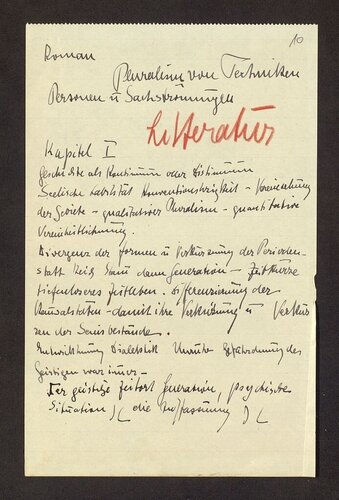 10
Roman
Pluralism von Techniken
Personen u Sachströmungen
Litteratur
Kapitel I
Geschichte als Kontinuum oder Distinuum
Seelische Labilität Konventionslosigkeit – Vereinzelung
der Gebiete – qualitativer Pluralism – quantitative
Vereinheitlichung.
Divergenz der Formen u Verkürzung der Perioden-
statt Reich dann Generation – Zeitkurve
Zeitleben – Differenzierung der
Kausalitäten – damit ihre u Verkür
zen der Seinsbestände.
Entwicklung Dialektik Unruhe Gefährdung des
Geistigen war immer –
Der geistige Zeitort Generation, psychische
Situation )( die Auffassung )(